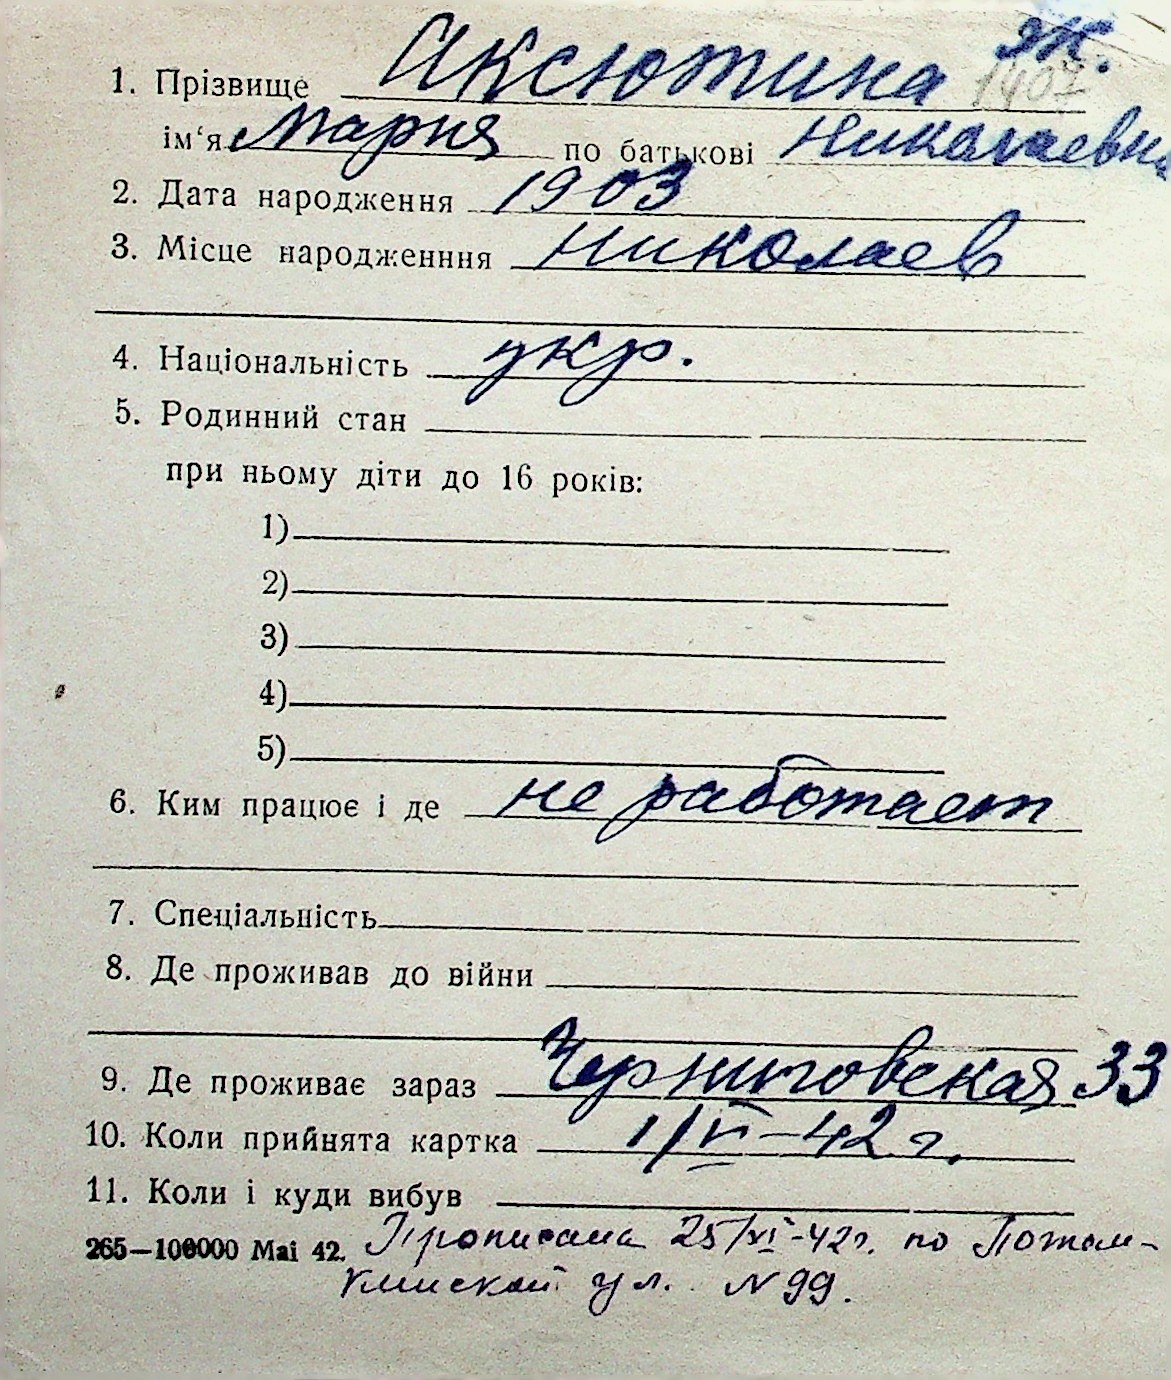 эк.
1. Прізвище Аксютина 1407
ім‘я Мария по батькові Николаевна
2. Дата народження 1903
3. Місце народженння Николаев
4. Національність укр.
5. Родинний стан
при ньому діти до 16 років:
1)
2)
3)
4)
5)
6. Ким працює і де не работает
7. Спеціальність
8. Де проживав до війни
9. Де проживає зараз Черниговская 33
10. Коли прийнята картка 1/VI-42 г.
11. Коли і куди вибув
265—100000 Маі 42. Прописана 25/XI-42г. по Потем-
кинской ул. N 99.